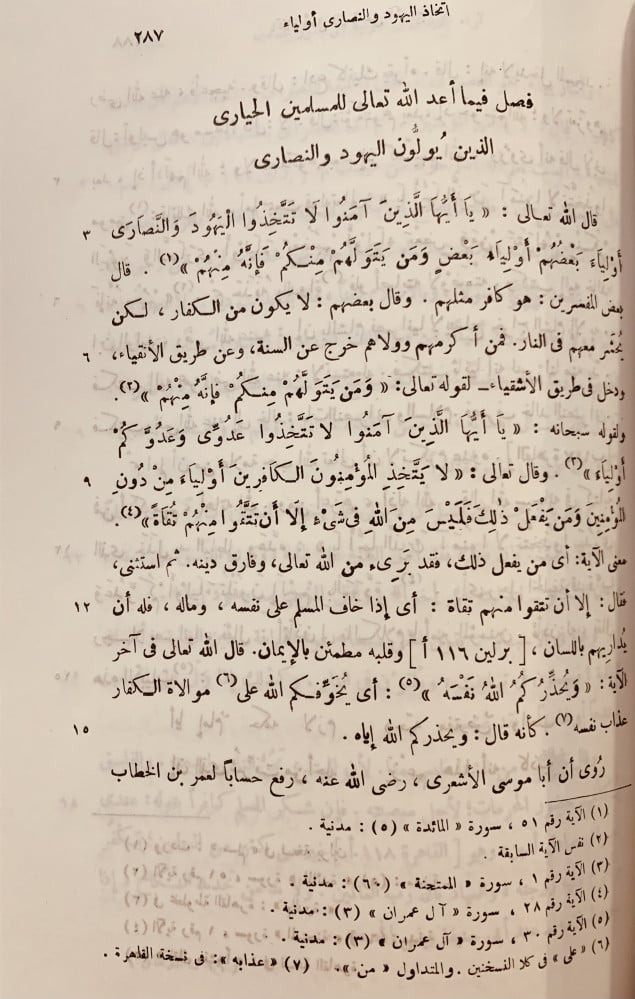 اتخاذ اليهود والنصارى أولياء
٢٨٧
فصل فيما أعد الله تعالى للمسلمين الحيارى
الذين يُولُّون اليهود والنصارى
قال الله تعالى : « يَا أَيُّهَا الَّذِينَ آمَنُوا لَا تَتَّخِذُوا الْيَهُودَ وَالنَّصَارَى ٣
أَوْلِيَاءَ بَعْضُهُمْ أَوْلِيَاءُ بَعْضٍ وَمَن يَتَوَلَّهُمْ مِنْكُمْ فَإِنَّهُ مِنْهُمْ »(١) . قال
بعض المفسرين : هو كافر مثلهم . وقال بعضهم : لا يكون من الكفار ، لكن
يُحشر معهم فى النار. فمن أكرمهم وولاهم خرج عن السنة، وعن طريق الأتقياء، ٦
ودخل فى طريق الأشقياء ــ لقوله تعالى: « وَمَن يَتَوَلَّهُمْ مِنكُمْ فَإِنَّهُ مِنْهُمْ »(٢).
ولقوله سبحانه : « يَا أَيُّهَا الَّذِينَ آمَنُوا لَا تَتَّخِذُوا عَدُوِّى وَعَدُوَّكُمْ
أَوْلِيَاءَ »(٣) . وقال تعالى : « لَا يَتَّخِذِ الْمُؤْمِنُونَ الْكَافِرِينَ أَوْلِيَاءَ مِنْ دُونِ ٩
الْمُؤْمِنِينَ وَمَن يَفْعَلْ ذٰلِكَ فَلَيْسَ مِنَ اللهِ فِى شَىْءٍ إِلَّا أَن تَتَّقُوا مِنْهُمْ تُقَاةً »(٤).
معنى الآية: أى من يفعل ذلك، فقد بَرِىء من الله تعالى، وفارق دينه. ثم استثنى،
فقال : إلا أن تتقوا منهم تقاة : أى إذا خاف المسلم على نفسه ، وماله ، فله أن ١٢
يُداريهم باللسان ، [ برلين ١١٦ أ ] وقلبه مطمئن بالإيمان. قال الله تعالى فى آخر
الآية : « وَيُحَذِّرُكُمُ اللهُ نَفْسَهُ »(٥) : أى يُخَوِّفكم الله على(٦) موالاة الكفار
عذاب نفسه(٧) . كأنه قال : ويحذركم الله إياه . ١٥
رُوى أن أبا موسى الأشعرى ، رضى الله عنه ، رفع حساباً لعمر بن الخطاب
(١) الآية رقم ٥١ ، سورة « المائدة » (٥) : مدنية .
(٢) نفس الآية السابقة .
(٣) الآية رقم ١ ، سورة « الممتحنة » (٦٠) : مدنية .
(٤) الآية رقم ٢٨ ، سورة « آل عمران » (٣) : مدنية .
(٥) الآية رقم ٣٠ ، سورة « آل عمران » (٣) : مدنية .
(٦) « على » فى كلا النسختين . والمتداول « من ». (٧) « عذابه » : فى نسخة القاهرة .